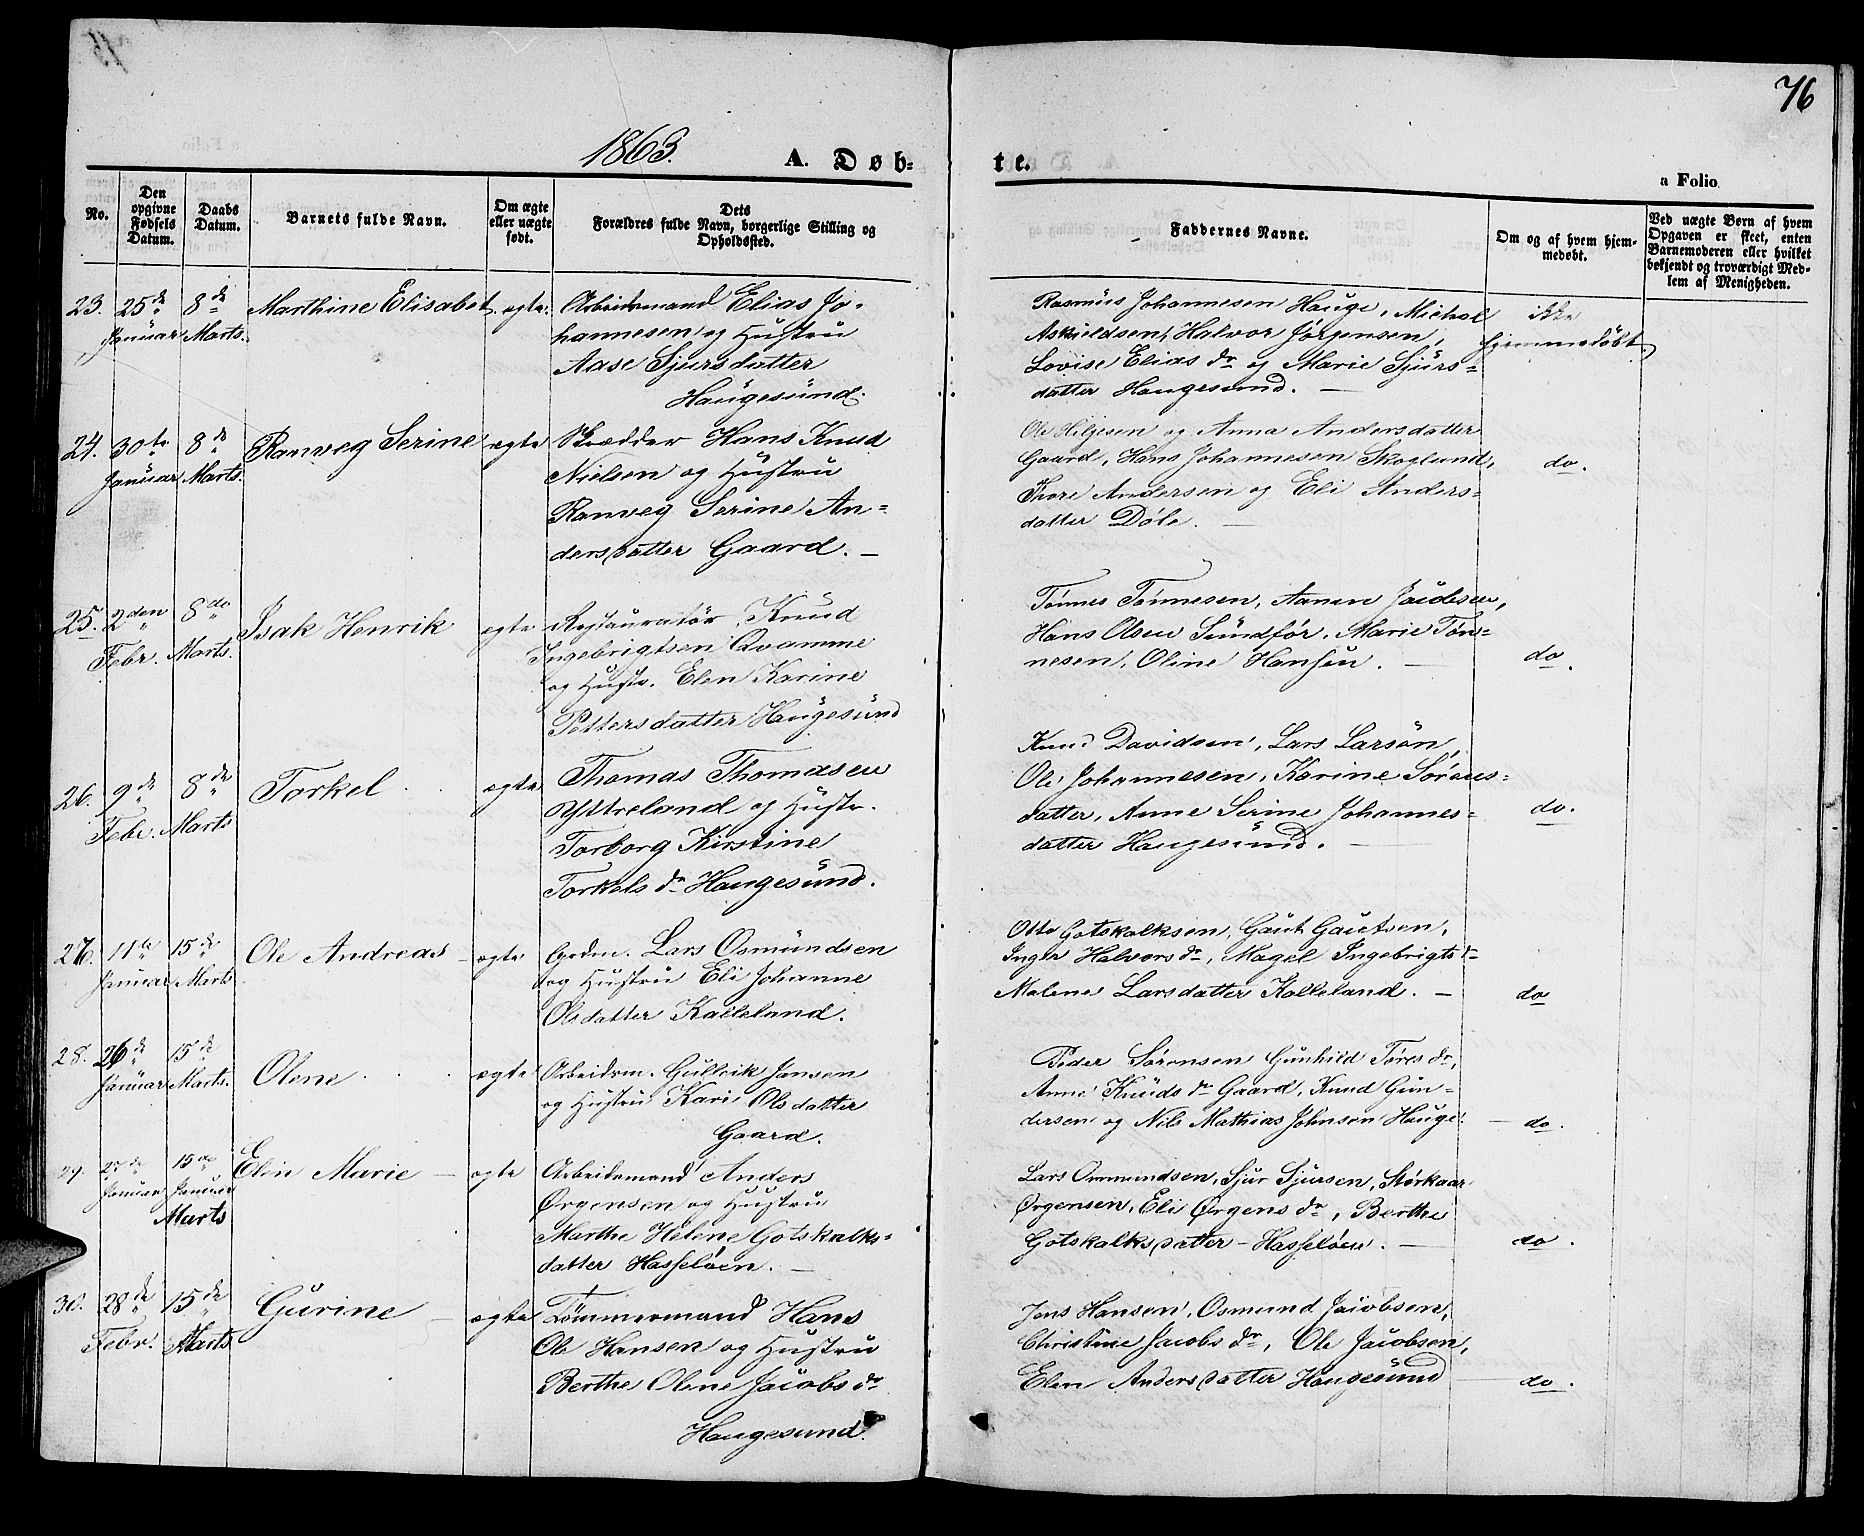 76
1863. A. Døb-
te.
a Folio
No.
Den
opgivne
Fødsels
Datum.
Daabs
Datum.
Barnets fulde Navn.
Om ægte
eller uægte
født.
Dets
Forældres fulde Navn, borgerlige Stilling og
Opholdssted.
Faddernes Navne.
Om og af hvem hjem-
medøbt.
Ved uægte Børn af hvem
Opgaven er skeet, enten
Barnemoderen eller hvilket
bekjendt og troværdigt Med-
lem af Menigheden.
23. 25de 8de Marthine Elisabet. ægte. Arbeidsmand Elias Jo-
Januar Marts. hannesen og Hustru
Aase Sjursdatter
Haugesund.
Rasmus Johannesen Hauge, Michal ikke
Askieldsen, Halvor Jørgensen, hjemmedøbt.
Lovise Elias dr og Marie Sjurs-
datter Haugesund. —
24. 30te 8de Ranveg Serine ægte Skrædder Hans Knud
Januar Marts. Nielsen og Hustru
Ranveg Serine An-
dersdatter Gaard. —
Ole Hiljesen og Anna Andersdatter
Gaard, Hans Johannesen Skoglund, do.
Thore Andersen og Eli Anders-
datter Døle. —
25. 2den 8de Isak Henrik ægte Restauratør Knud
Febr. Marts. Ingebrigtsen Qvamme
og Hustr. Elen Karine
Pettersdatter Haugesund
Tønnes Tønnesen, Aanen
Hans Olsen Sundfør, Marie Tøn-
nesen, Oline Hansen. — do.
26. 9de 8de Torkel ægte Thomas Thomasen
Febr. Marts Yttreland og Hustr.
Torborg Kirstine
Torkels dr Haugesund.
Knud Davidsen, Lars Larsøn,
Ole Johannesen, Karine Sørens-
datter, Anne Serine Johannes- do.
datter Haugesund. —
27. 11te 15de Ole Andreas ægte Grdm. Lars Osmundsen
Januar Marts og Hustru Eli Johanne
Olsdatter Kalleland.
Otto Gotskalksen, Gaut Gautsen,
Inger Halvors dr, Magel Ingebrigts dr
Malene Larsdatter Kalleland. — do
28. 26de 15de Olene ægte Arbeidsm. Gullik Jansen
Januar Marts. og Hustru Kari Olsdatter
Gaard.
Peder Sørensen Gunhild Tøres dr,
Anne Knuds dr Gaard, Knud Gun-
dersen og Nils Mathias Johnsen Hauge. — do.
29. 27de 15de Elen Marie — ægte Arbeidsmand Anders
Januar Januar Ørgensen og Hustru
Marts Marthe Helene Gotskalks-
datter Hasseløen. —
Lars Ommundsen, Sjur Sjursen, Størkaar
Ørgensen, Eli Ørgens dr, Berthe
Gotskalksdatter — Hasseløen. — do.
30. 28de 15de Gurine — ægte Tømmermand Hans
Febr. Marts Ole Hansen og Hustru
Berthe Olene Jacobs dr
Haugesund.
Jens Hansen, Osmund Jacobsen,
Christine Jacobs dr, Ole Jacobsen,
Elen Andersdatter Haugesund — do.